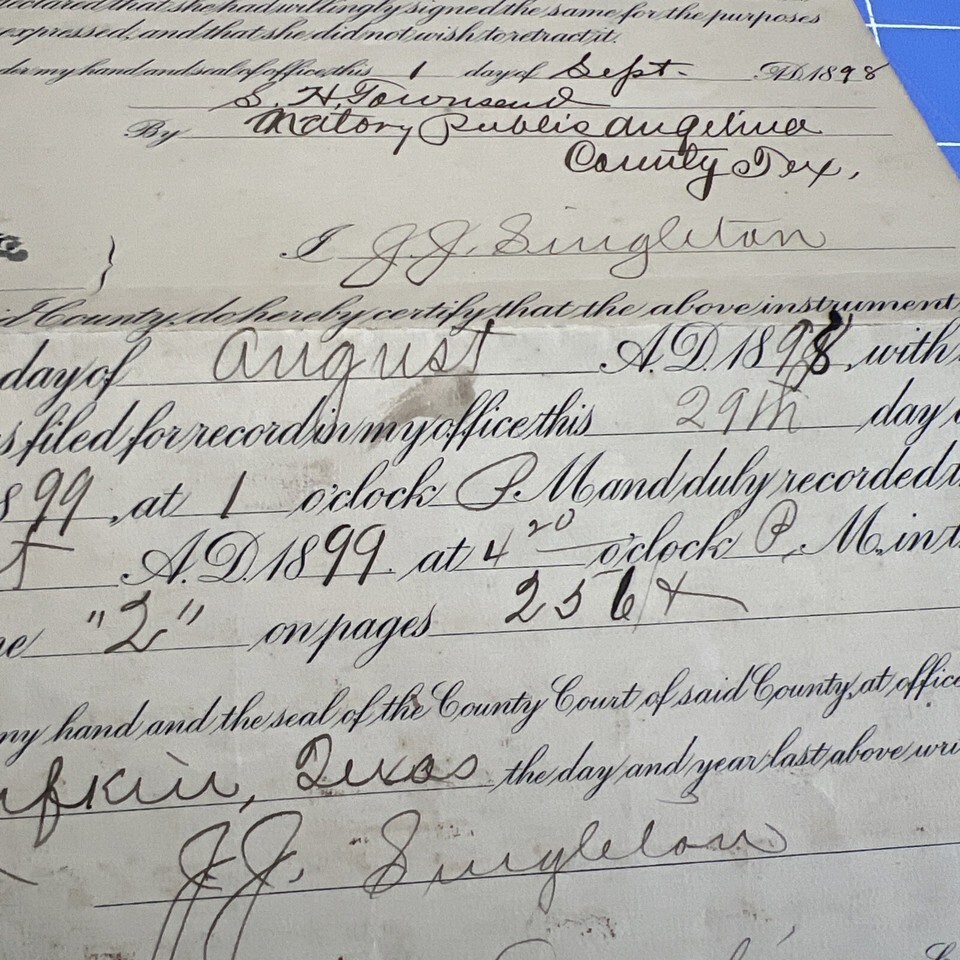 declared that she had willingly signed the same for the purposes
expressed, and that she did not wish to retract it.
my hand and seal of office this 1 day of Sept. A.D. 1898
S. H. Townsend
By Notory Public Angelina
County Tex.
I J. J. Singleton
County, do hereby certify that the above instrument
day of August A.D. 1898, with
filed for record in my office this 29th day
99, at 1 o'clock P. M and duly recorded
A.D. 1899. at 4 20 o'clock P. M. in
"2" on pages 256 &
my hand and the seal of the County Court of said County, at office
ufkin, Texas the day and year last above
J. J. Singleton